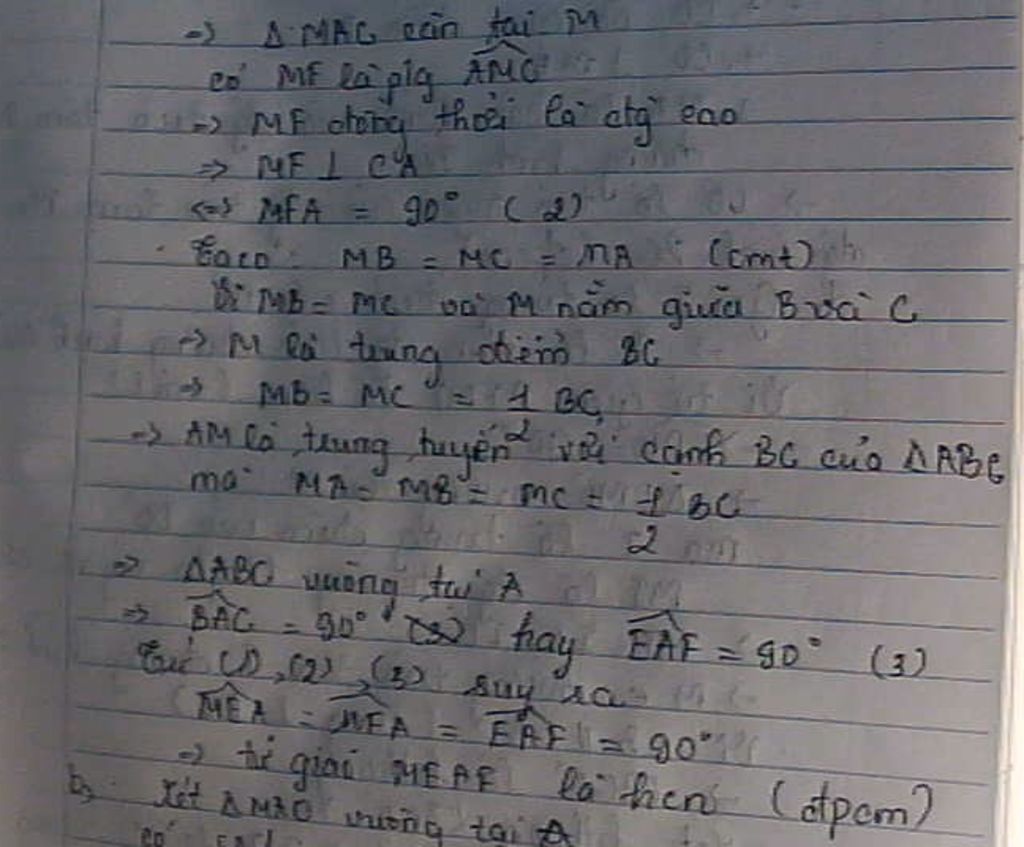 => Δ MAC cân tại M
có MF là p/g AMC
=> MF đồng thời là đtg cao
=> MF ⊥ CA
<=> MFA = 90° (2)
Ta có: MB = MC = MA (cmt)
Vì MB = MC và M nằm giữa B và C
=> M là trung điểm BC
=> MB = MC = 1/2 BC
=> AM là trung tuyến với cạnh BC của ΔABC
mà MA = MB = MC = 1/2 BC
=> ΔABC vuông tại A
=> BAC = 90° hay EAF = 90° (3)
Từ (1), (2), (3) suy ra
MEA = MFA = EAF = 90°
=> tứ giác MEAF là hcn (đpcm)
b, Xét ΔMBO vuông tại
có